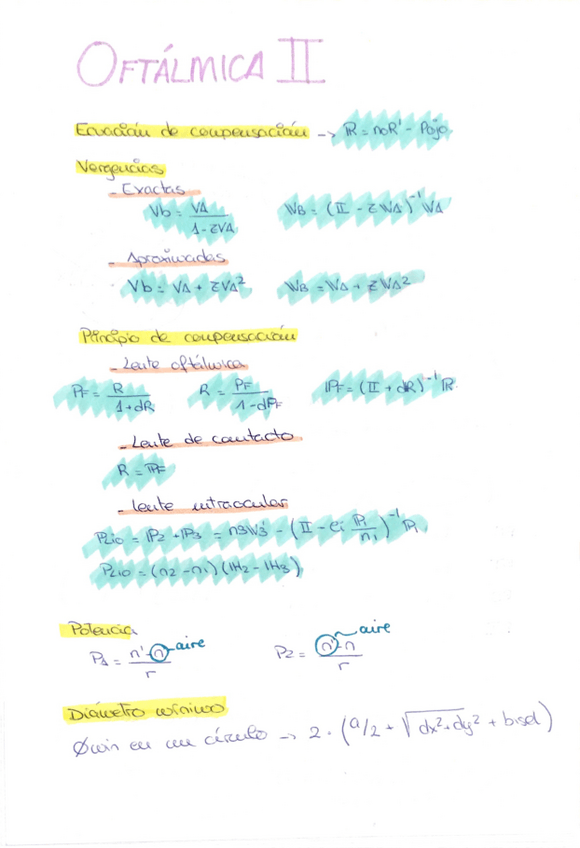 OFTÁLMICA II
Ecuación de compensación → ℝ = noR' - Pojo
Vergencias
- Exactas
Vb = VA / 1 - zVA    WB = (𝕀 - zWA)⁻¹ WA
- Aproximadas
Vb = VA + zVA²    WB = WA + zWA²
Principio de compensación
- Lente oftálmica
PF = R / 1 + dR    R = PF / 1 - dPF    ℙF = (𝕀 + dR)⁻¹ ℝ
- Lente de contacto
R = ℙF
- lente intraocular
PLIO = ℙ2 + ℙ3 = n3V3' - (𝕀 - ei ℝ / n1)⁻¹ ℝ
PLIO = (n2 - n1) (ℍ2 - ℍ3)
Potencia
P1 = n' - n / r aire    P2 = n' - n / r aire
Diámetro mínimo
Ømin en un círculo → 2 · (a/2 + √dx² + dy² + bisel)